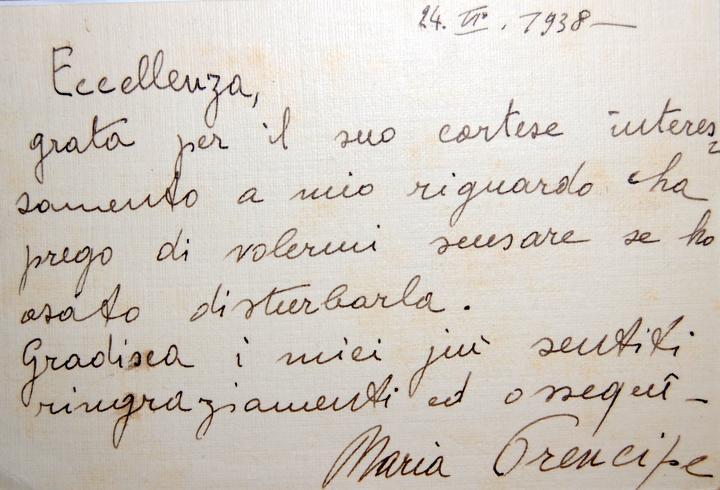 24. VI°. 1938 —
Eccellenza,
grata per il suo cortese interes=
samento a mio riguardo la
prego di volermi scusare se ho
osato disturbarla.
Gradisca i miei più sentiti
ringraziamenti ed ossequî -
Maria Prencipe